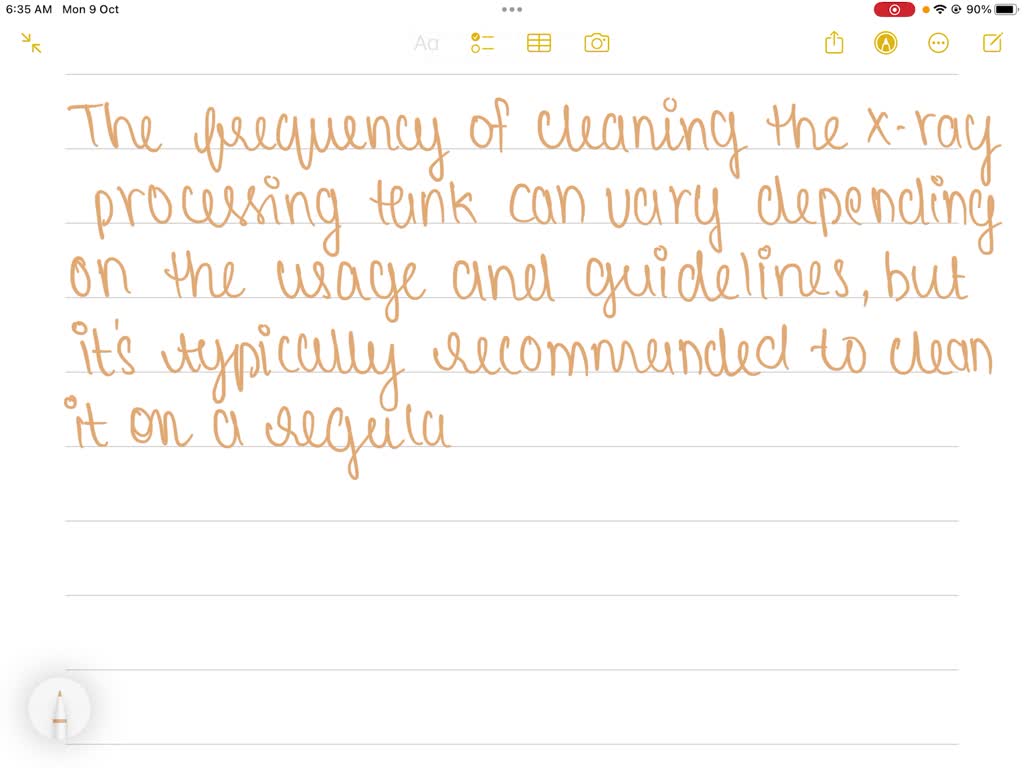 6:35 AM Mon 9 Oct
90%
Aa
The frequency of cleaning the x-ray
processing tank can vary depending
on the usage and guidelines, but
it's typically recommended to clean
it on a regula